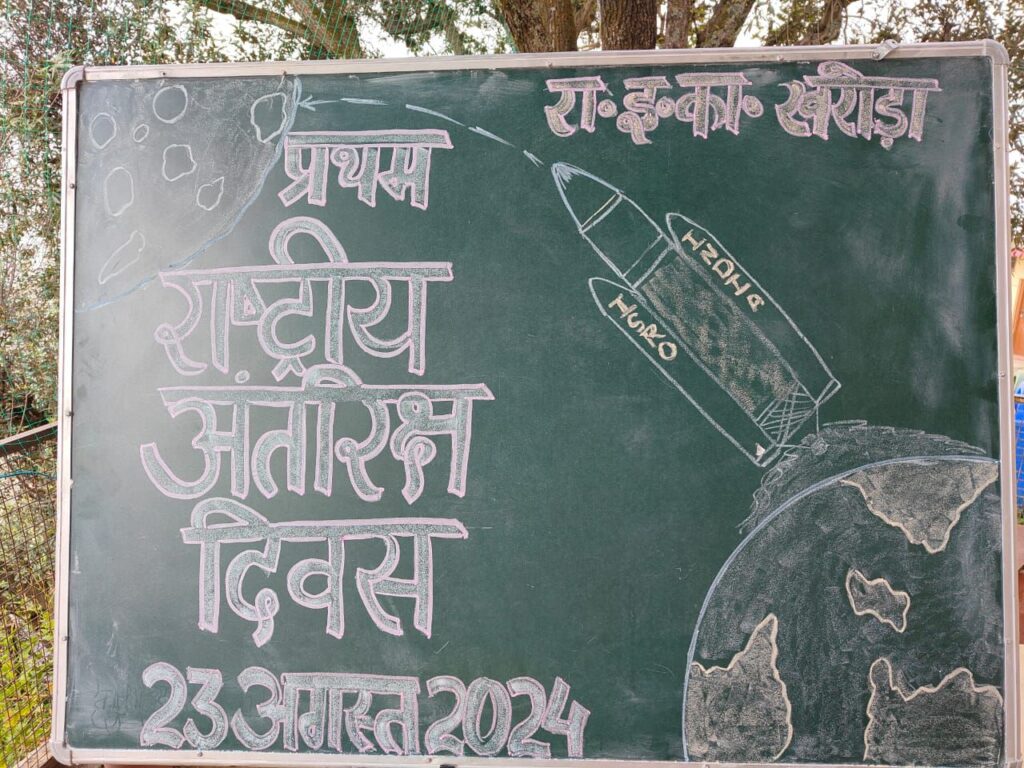 रा॰इ॰का॰ खरोड़ा
प्रथम
राष्ट्रीय
अंतरिक्ष
दिवस
23 अगस्त 2024
INDIA
ISRO